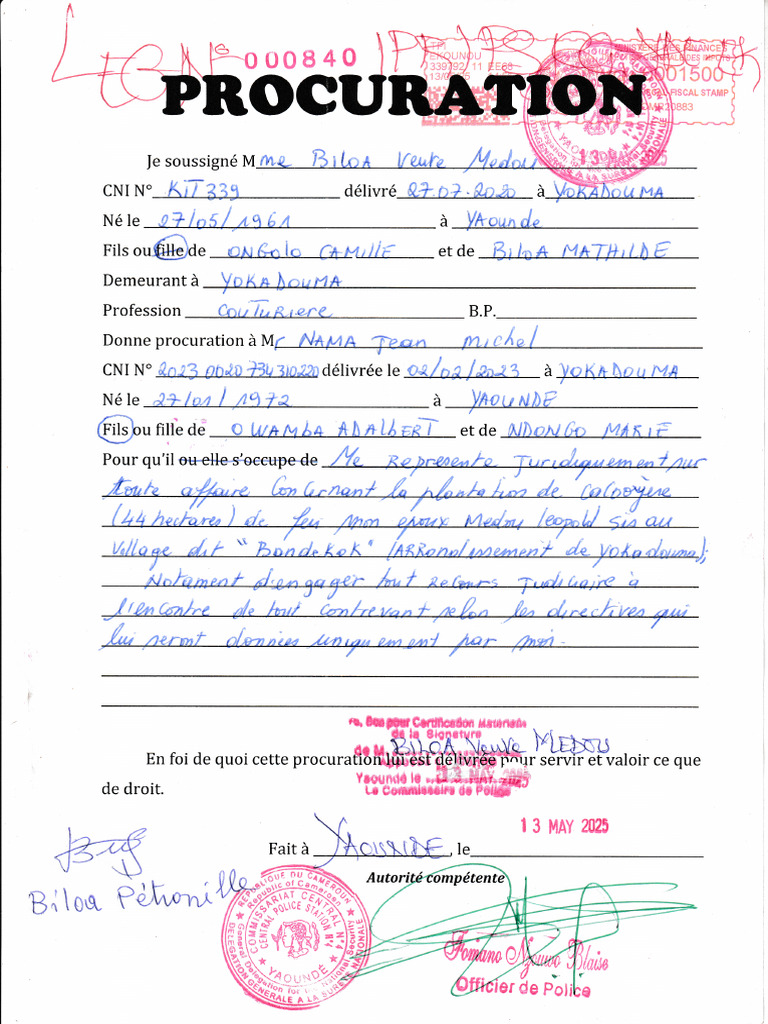 LEGN°
000840
EKOUNOU
MINISTERE DES FINANCES
001500
FISCAL STAMP
PROCURATION
Je soussigné Mme BILOA Veuve Medou
CNI N° KIT339 délivré 27.07.2020 à YOKADOUMA
Né le 27/05/1961 à YAounde
Fils ou fille de ONGOLO CAMILLE et de BILOA MATHILDE
Demeurant à YOKADOUMA
Profession COUTURIERE B.P.
Donne procuration à Mr NAMA Jean Michel
CNI N° 2023 0020 734310220 délivrée le 02/02/2023 à YOKADOUMA
Né le 27/01/1972 à YAOUNDE
Fils ou fille de OWAMBA ADALBERT et de NDONGO MARIE
Pour qu'il ou elle s'occupe de Me Represente Juridiquement sur
toute affaire Concernant la plantation de
(44 hectares) de feu mon epoux Medou leopold sis au
Village dit "Bandekok" (ARRondissement de Yokadouma);
Notament d'engager tout Recours Judiciaire à
l'encontre de tout contrevant selon les directives qui
lui seront données uniquement par moi.
Bon pour Certification Matérielle
de la Signature
de M. BILOA Veuve MEDOU
En foi de quoi cette procuration lui est délivrée pour servir et valoir ce que
Yaoundé le 13 MAY 2025
de droit.
Le Commissaire de Police
13 MAY 2025
Fait à YAOUNDE, le
Autorité compétente
Biloa Pétronille
REPUBLIQUE DU CAMEROUN
Republic of Cameroon
COMMISSARIAT CENTRAL N°4
CENTRAL POLICE STATION N°4
YAOUNDÉ
General Delegation for the National Security
DELEGATION GENERALE A LA SURETE NATIONALE
Blaise
Officier de Police